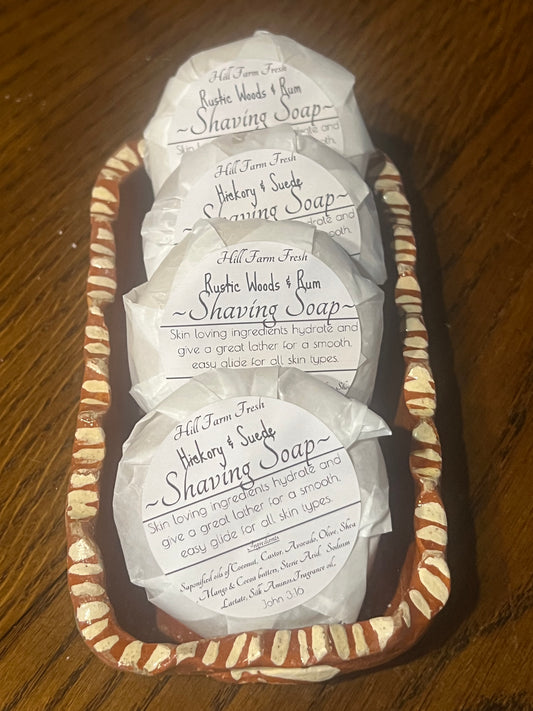 Hill Farm Fresh
Rustic Woods & Rum
~Shaving Soap~
hydrate and
smooth,
Hill Farm Fresh
Hickory & Suede
~Shaving Soap~
hydrate and
smooth,
Hill Farm Fresh
Rustic Woods & Rum
~Shaving Soap~
Skin loving ingredients hydrate and
give a great lather for a smooth,
easy glide for all skin types.
Hill Farm Fresh
Hickory & Suede
~Shaving Soap~
Skin loving ingredients hydrate and
give a great lather for a smooth,
easy glide for all skin types.
Ingredients
Saponified oils of Coconut, Castor, Avocado, Olive, Shea
, Mango & Cocoa butters, Steric Acid, Sodium
Lactate, Silk Aminos, Fragrance oil,
John 3:16